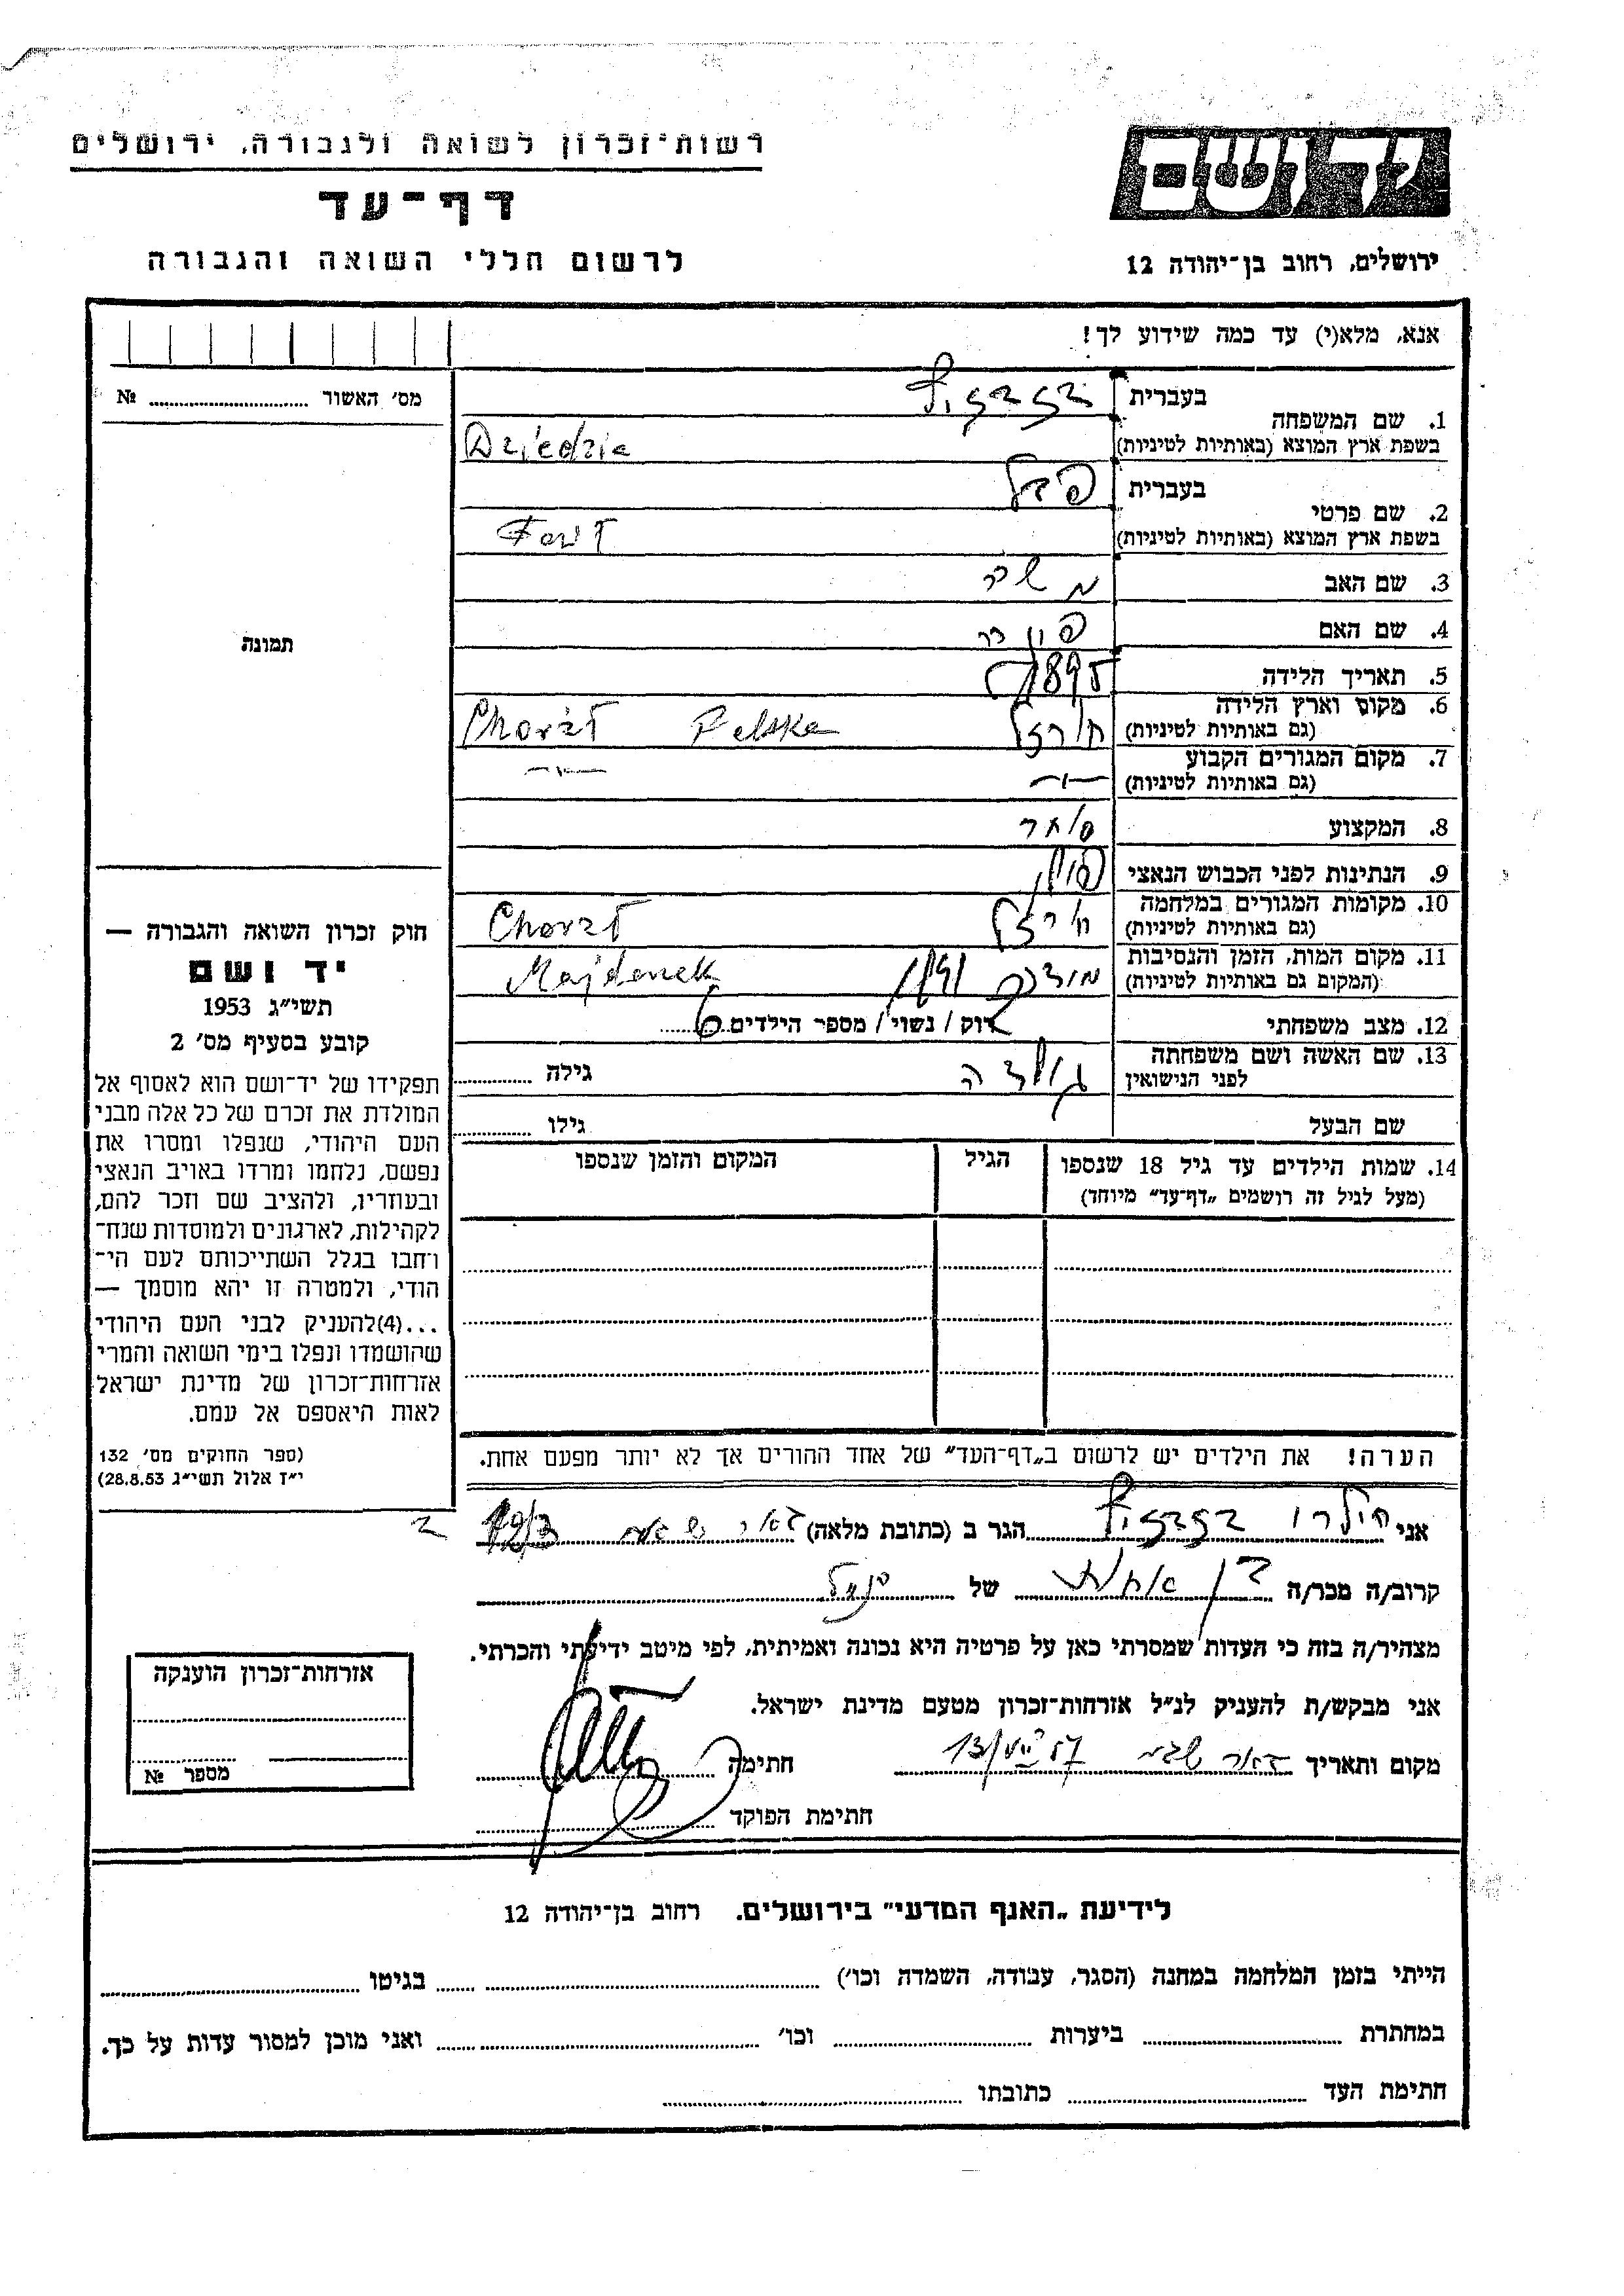 רשות־זכרון לשואה ולגבורה, ירושלים
יד ושם
דף־עד
לרשום חללי השואה והגבורה
ירושלים, רחוב בן־יהודה 12
אנא, מלא(י) עד כמה שידוע לך!
מס׳ האשור № ..........
1. שם המשפחה בעברית
בשפת ארץ המוצא (באותיות לטיניות) Dziedzie
2. שם פרטי בעברית
בשפת ארץ המוצא (באותיות לטיניות)
3. שם האב משה
4. שם האם
5. תאריך הלידה 1895
6. מקום וארץ הלידה
(גם באותיות לטיניות) חורזל Polska
7. מקום המגורים הקבוע
(גם באותיות לטיניות) —״— —״—
8. המקצוע סוחר
9. הנתינות לפני הכבוש הנאצי פולין
10. מקומות המגורים במלחמה
(גם באותיות לטיניות) חורזל
11. מקום המות, הזמן והנסיבות
(המקום גם באותיות לטיניות) Majdanek
12. מצב משפחתי רוק / נשוי / מספר הילדים 6
13. שם האשה ושם משפחתה
לפני הנישואין גולדה גילה ..........
שם הבעל גילו ..........
14. שמות הילדים עד גיל 18 שנספו הגיל המקום והזמן שנספו
(מעל לגיל זה רושמים „דף־עד״ מיוחד)
הערה! את הילדים יש לרשום ב„דף־העד״ של אחד ההורים אך לא יותר מפעם אחת.
תמונה
חוק זכרון השואה והגבורה —
יד ושם
תשי״ג 1953
קובע בסעיף מס׳ 2
תפקידו של יד־ושם הוא לאסוף אל
המולדת את זכרם של כל אלה מבני
העם היהודי, שנפלו ומסרו את
נפשם, נלחמו ומרדו באויב הנאצי
ובעוזריו, ולהציב שם וזכר להם,
לקהילות, לארגונים ולמוסדות שנח־
רחבו בגלל השתייכותם לעם הי־
הודי, ולמטרה זו יהא מוסמך —
...(4)להעניק לבני העם היהודי
שהושמדו ונפלו בימי השואה והמרי
אזרחות־זכרון של מדינת ישראל
לאות היאספם אל עמם.
(ספר החוקים מס׳ 132
י״ז אלול תשי״ג 28.8.53)
אני הגר ב (כתובת מלאה) באר שבע
קרוב/ה מכר/ה בן אחות של הנ״ל
מצהיר/ה בזה כי העדות שמסרתי כאן על פרטיה היא נכונה ואמיתית, לפי מיטב ידיעתי והכרתי.
אני מבקש/ת להעניק לנ״ל אזרחות־זכרון מטעם מדינת ישראל.
מקום ותאריך באר שבע חתימה
חתימת הפוקד ..........
אזרחות־זכרון הוענקה
מספר №
לידיעת „האנף המדעי״ בירושלים, רחוב בן־יהודה 12
הייתי בזמן המלחמה במחנה (הסגר, עבודה, השמדה וכו׳) .......... בגיטו ..........
במחתרת .......... ביערות .......... וכו׳ .......... ואני מוכן למסור עדות על כך.
חתימת העד .......... כתובתו ..........